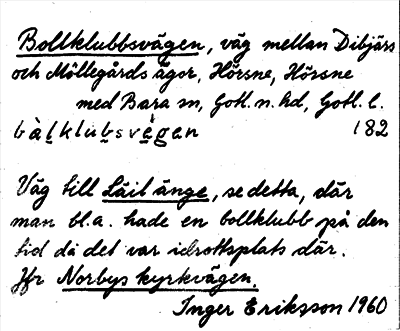 Bollklubbsvägen, väg mellan Dibjärs
och Möllegårds ägor, Hörsne, Hörsne
med Bara sn, Gotl. n. hd, Gotl. l.
bàlklubsvegen 182
Väg till Läil änge, se detta, där
man bl.a. hade en bollklubb på den
tid då det var idrottsplats där.
Jfr Norbys kyrkvägen.
Inger Eriksson 1960